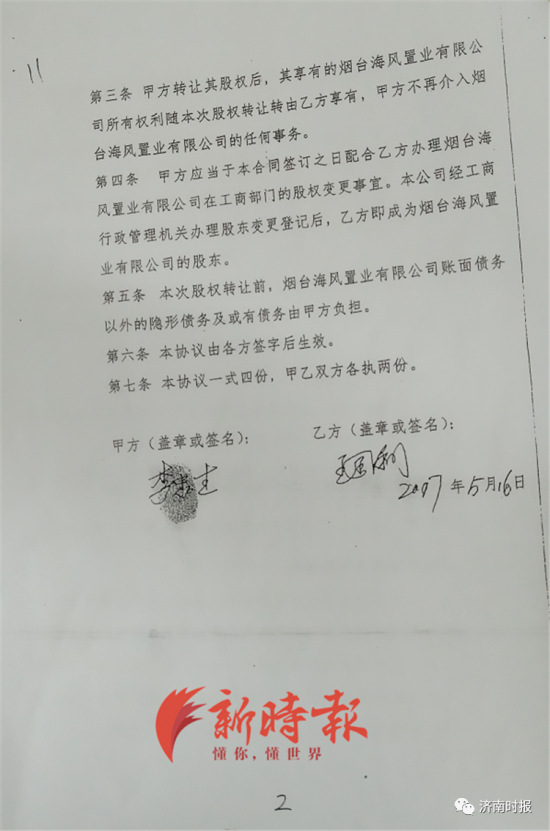 11
第三条 甲方转让其股权后，其享有的烟台海风置业有限公
司所有权利随本次股权转让转由乙方享有，甲方不再介入烟
台海风置业有限公司的任何事务。
第四条 甲方应当于本合同签订之日配合乙方办理烟台海
风置业有限公司在工商部门的股权变更事宜。本公司经工商
行政管理机关办理股东变更登记后，乙方即成为烟台海风置
业有限公司的股东。
第五条 本次股权转让前，烟台海风置业有限公司账面债务
以外的隐形债务及或有债务由甲方负担。
第六条 本协议由各方签字后生效。
第七条 本协议一式四份，甲乙双方各执两份。
甲方（盖章或签名）： 乙方（盖章或签名）：
2007年5月16日
新時報
懂你，懂世界
2
济南时报